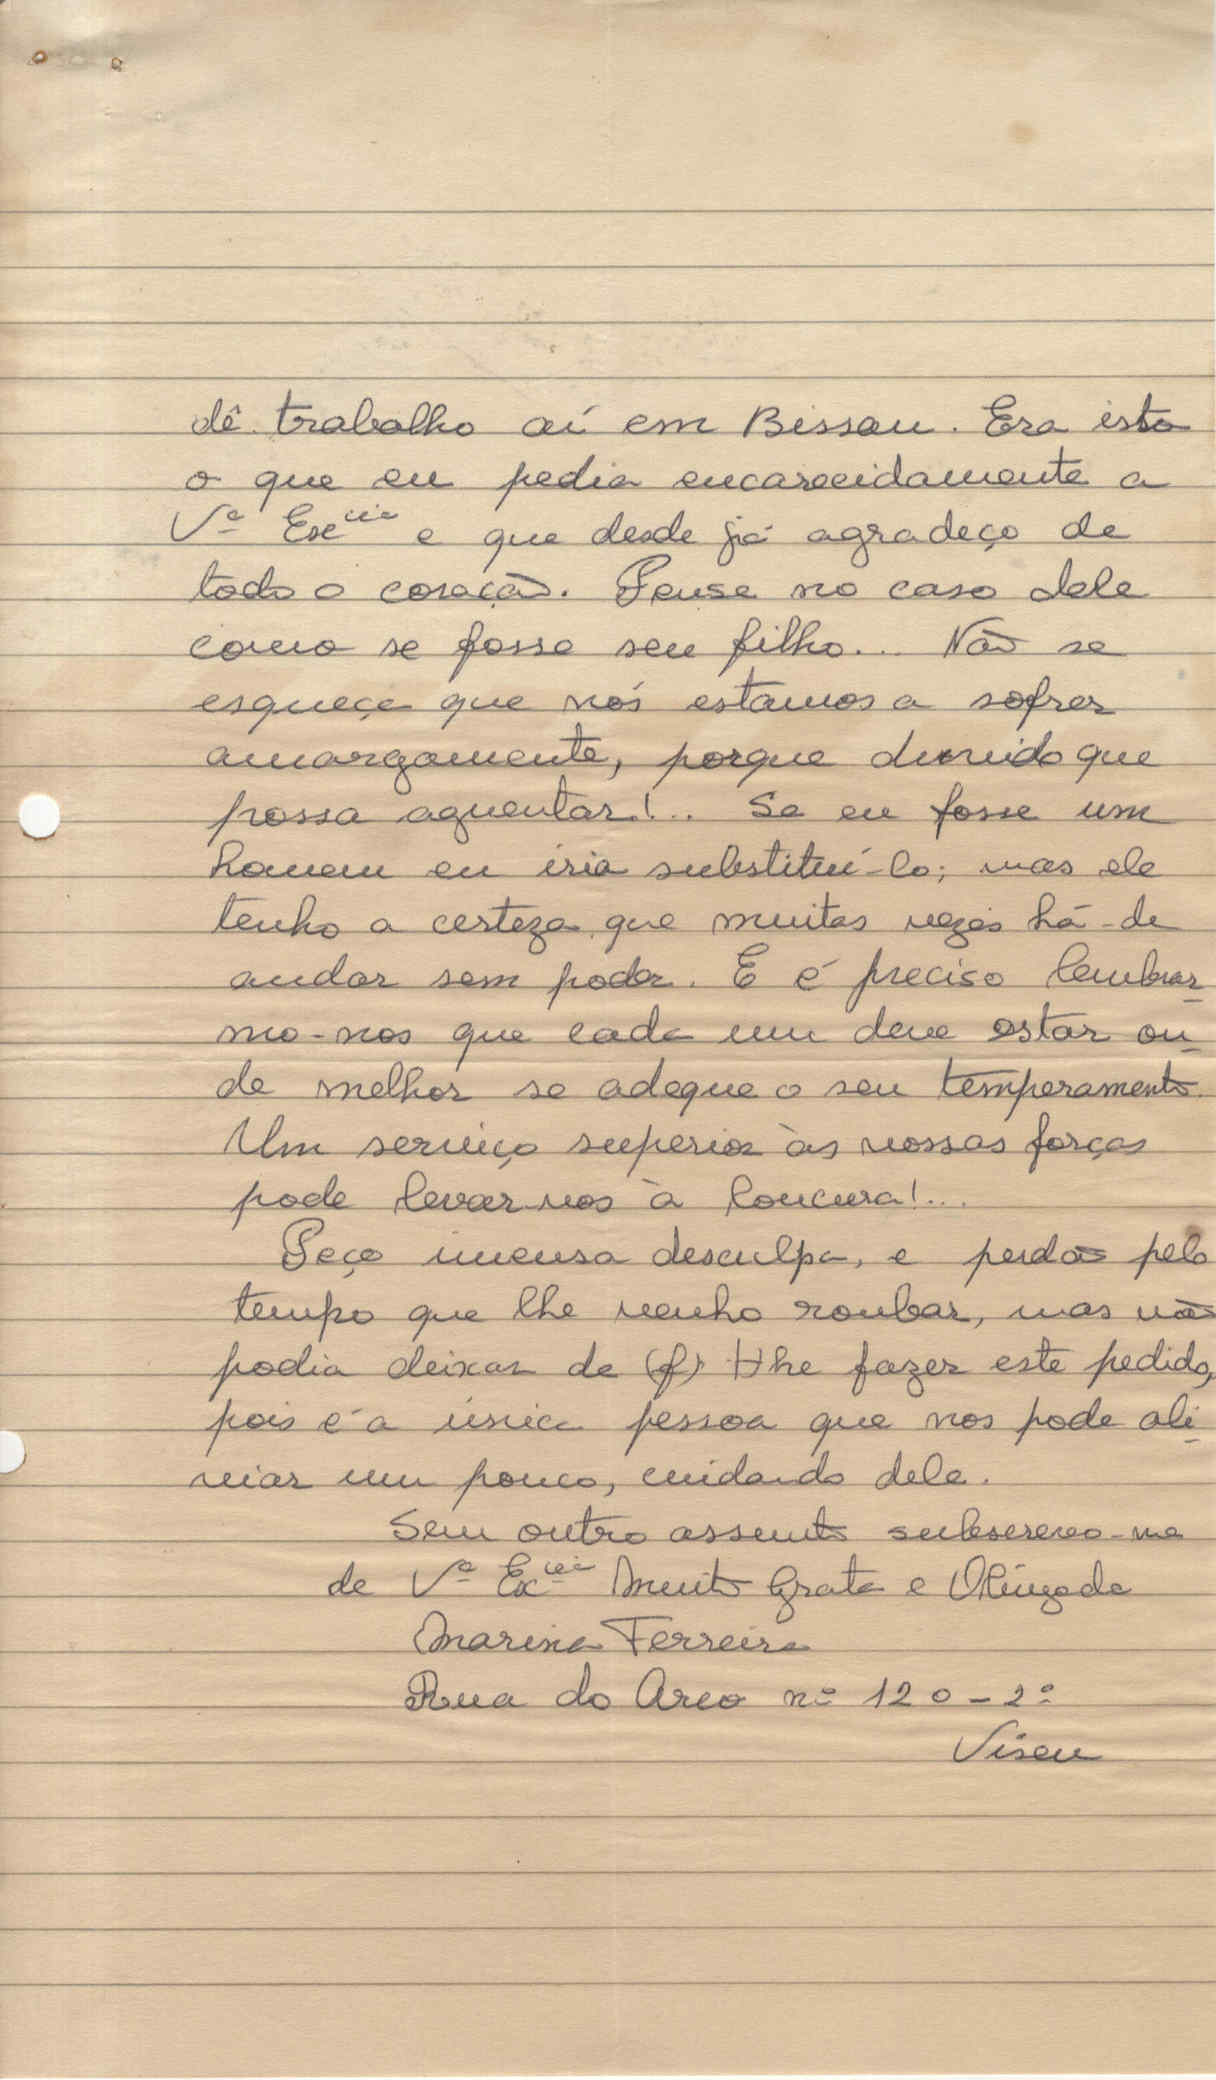 dê trabalho aí em Bissau. Era isto
o que eu pedia encarecidamente a
Vª Excia e que desde já agradeço de
todo o coração. Pense no caso dele
como se fosse seu filho... Não se
esqueça que nós estamos a sofrer
amargamente, porque duvido que
possa aguentar!.. Se eu fosse um
homem eu iria substituí-lo; mas ele
tenho a certeza que muitas vezes há-de
andar sem poder. E é preciso lembrar_
mo-nos que cada um deve estar on_
de melhor se adeque o seu temperamento.
Um serviço superior às nossas forças
pode levar-nos à loucura!...
Peço imensa desculpa, e perdão pelo
tempo que lhe venho roubar, mas não
podia deixar de (f) lhe fazer este pedido,
pois é a única pessoa que nos pode ali_
viar um pouco, cuidando dele.
Sem outro assunto subscrevo-me
de Vª Excia Muito Grata e Obrigada
Marina Ferreira
Rua do Arco nº 120-2º
Viseu